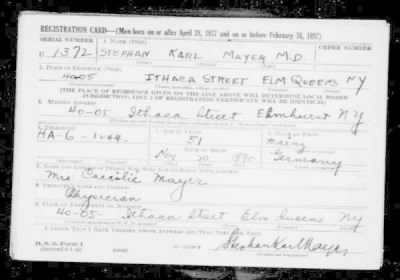 REGISTRATION CARD—(Men born on or after April 28, 1877 and on or before February 16, 1897)
SERIAL NUMBER 1. NAME (Print) ORDER NUMBER
U 1372 STEPHAN KARL MAYER M.D.
2. PLACE OF RESIDENCE (Print)
4005 ITHACA STREET ELM QUEENS NY
[THE PLACE OF RESIDENCE GIVEN ON THE LINE ABOVE WILL DETERMINE LOCAL BOARD
JURISDICTION; LINE 2 OF REGISTRATION CERTIFICATE WILL BE IDENTICAL]
3. MAILING ADDRESS
40-05 Ithaca Street Elmhurst NY
4. TELEPHONE 5. AGE IN YEARS 6. PLACE OF BIRTH
HA-6-1244 51 Mainz
DATE OF BIRTH
Nov 20 1890 Germany
Mrs. Caecilie Mayer
8. EMPLOYER'S NAME AND ADDRESS
Physician
9. PLACE OF EMPLOYMENT OR BUSINESS
40-05 Ithaca Street Elm Queens NY
I AFFIRM THAT I HAVE VERIFIED ABOVE ANSWERS AND THAT THEY ARE TRUE.
D. S. S. Form 1 Stephan Karl Mayer